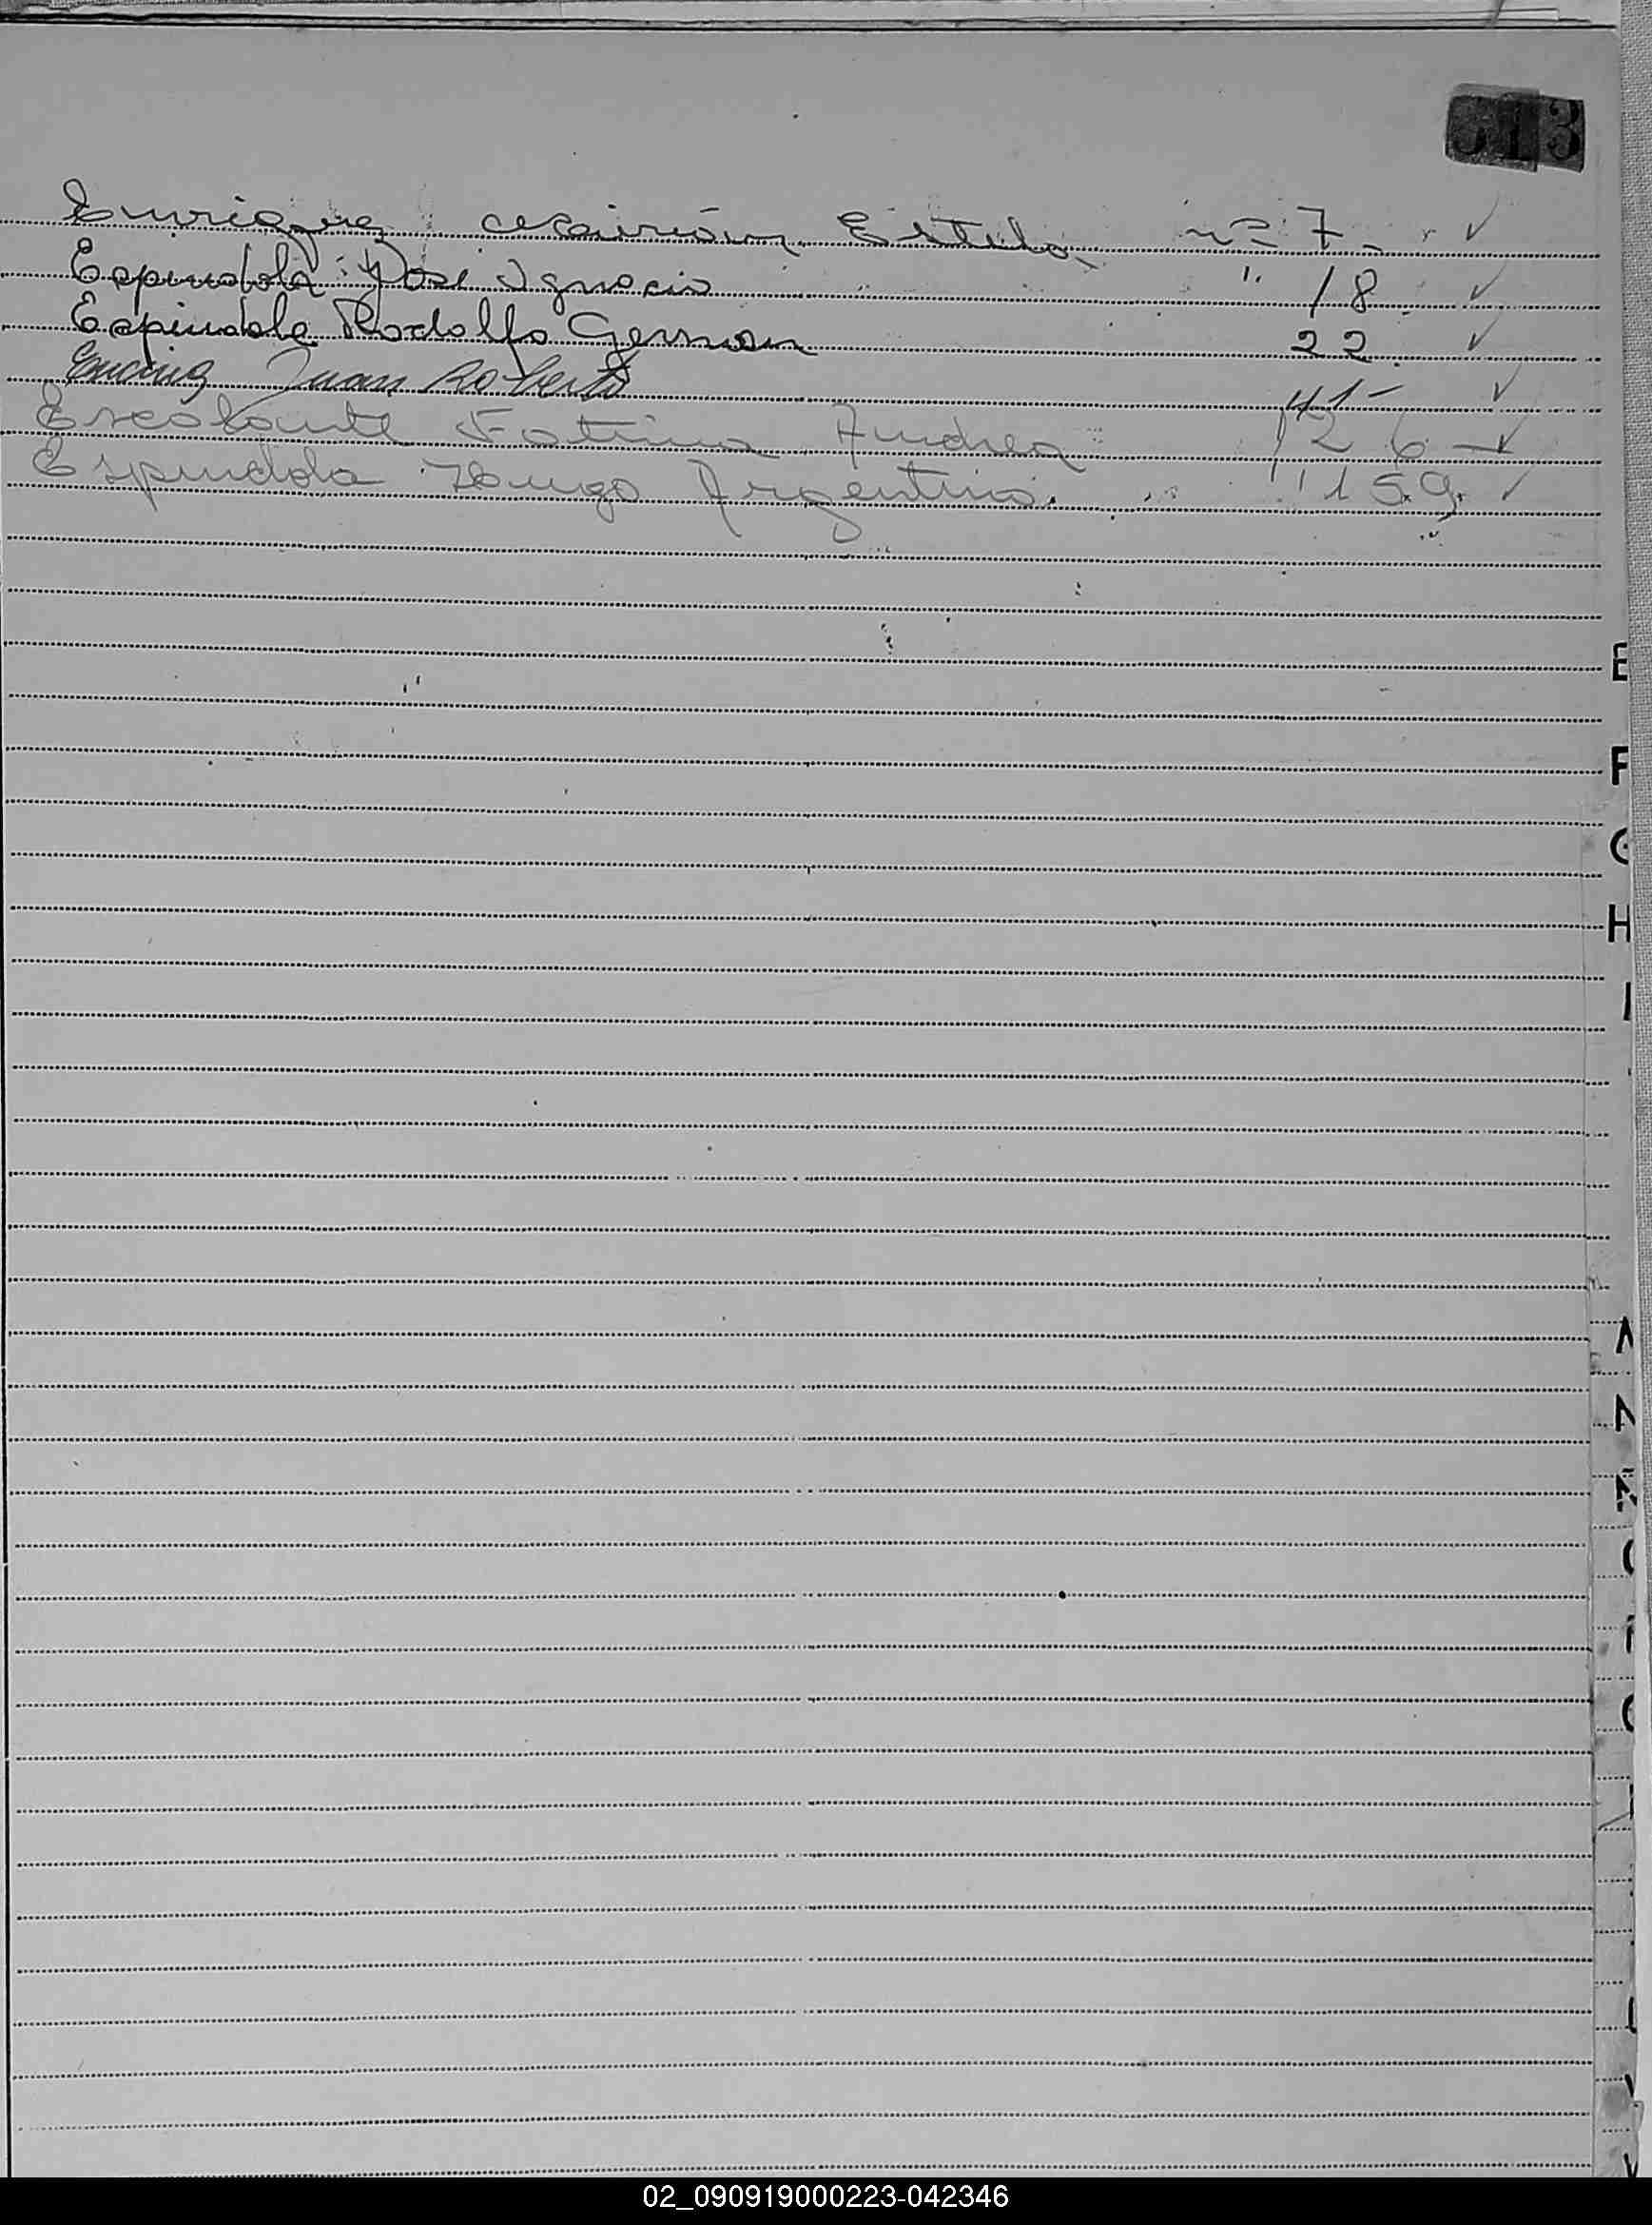 513
Enriquez Estela nº 7 - ✓
Espindola José Ignacio " 18 ✓
Espindola Rodolfo German 22 ✓
Encina Juan Roberto 41 - ✓
Escalante Fatima Andrea 126 - ✓
Espindola Hugo Argentino. " 159. ✓
E
F
G
H
I
M
N
Ñ
O
P
Q
02_090919000223-042346